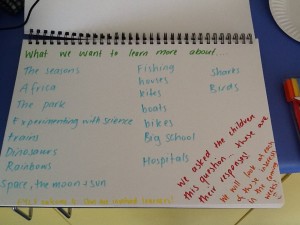 What we want to learn more about...
The seasons
Africa
The park
Experimenting with science
trains
Dinosaurs
Rainbows
Space, the moon + sun
Fishing
houses
kites
boats
bikes
Big school
Hospitals
Sharks
Birds
We asked the children
this question... these are
their responses!
We will look at each
of these interests
in the coming
weeks!